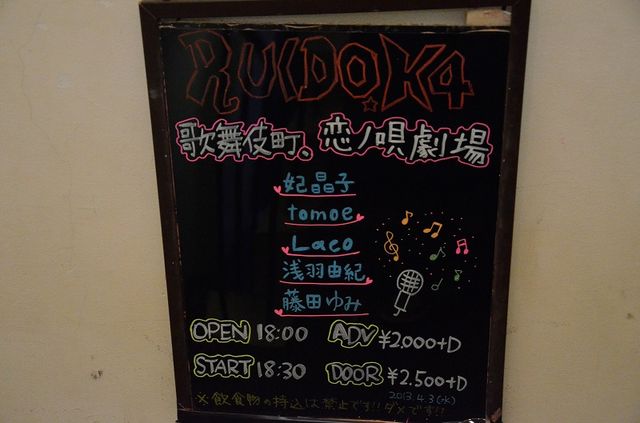 RUIDO.K4
歌舞伎町、恋ノ唄劇場
妃晶子
tomoe
Laco
浅羽由紀
藤田ゆみ
OPEN 18:00 ADV ¥2.000+D
START 18:30 DOOR ¥2.500+D
2013.4.3(水)
※飲食物の持込は禁止です!!ダメです!!